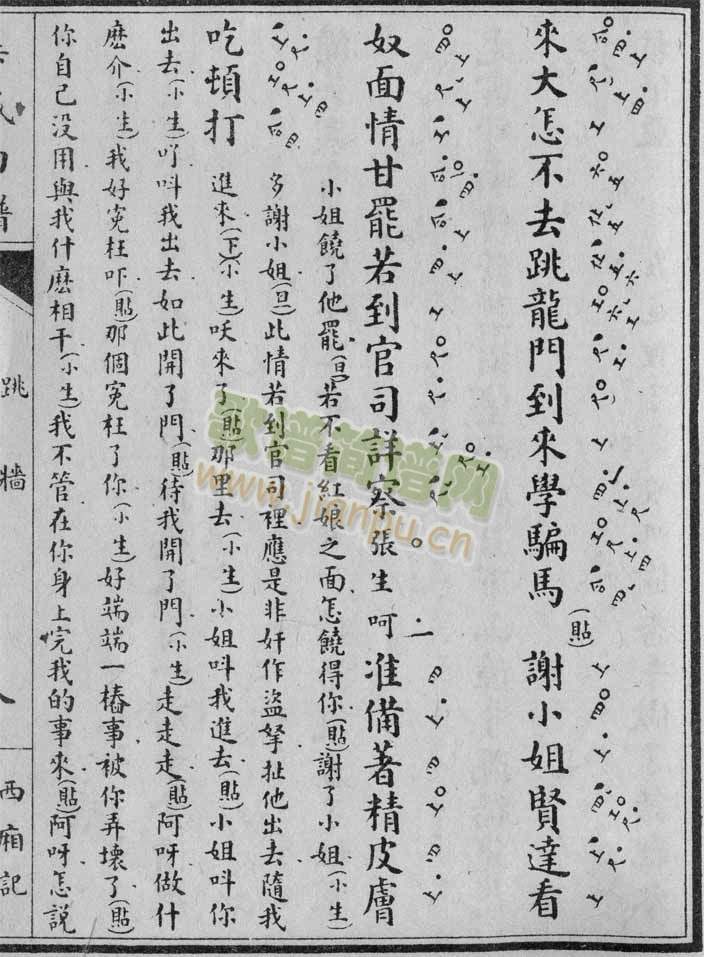 來大怎不去跳龍門到來學騙馬(貼)謝小姐賢達看
奴面情甘罷若到官司詳察張生呵准備著精皮膚
小姐饒了他罷(旦)若不看紅娘之面怎饒得你(貼)謝了小姐(小生)
多謝小姐(旦)此情若到官司裡應是非奸作盜拏扯他出去隨我
吃頓打進來(下)(小生)呀來了(貼)那里去(小生)小姐叫我進去(貼)小姐叫你
出去(小生)吓叫我出去如此開了門(貼)待我開了門(小生)走走走(貼)阿呀做什
麽介(小生)我好冤枉吓(貼)那個冤枉了你(小生)好端端一樁事被你弄壞了(貼)
你自己没用與我什麽相干(小生)我不管在你身上完我的事來(貼)阿呀怎説
跳牆
西廂記
歌譜簡譜网
www.jianpu.cn